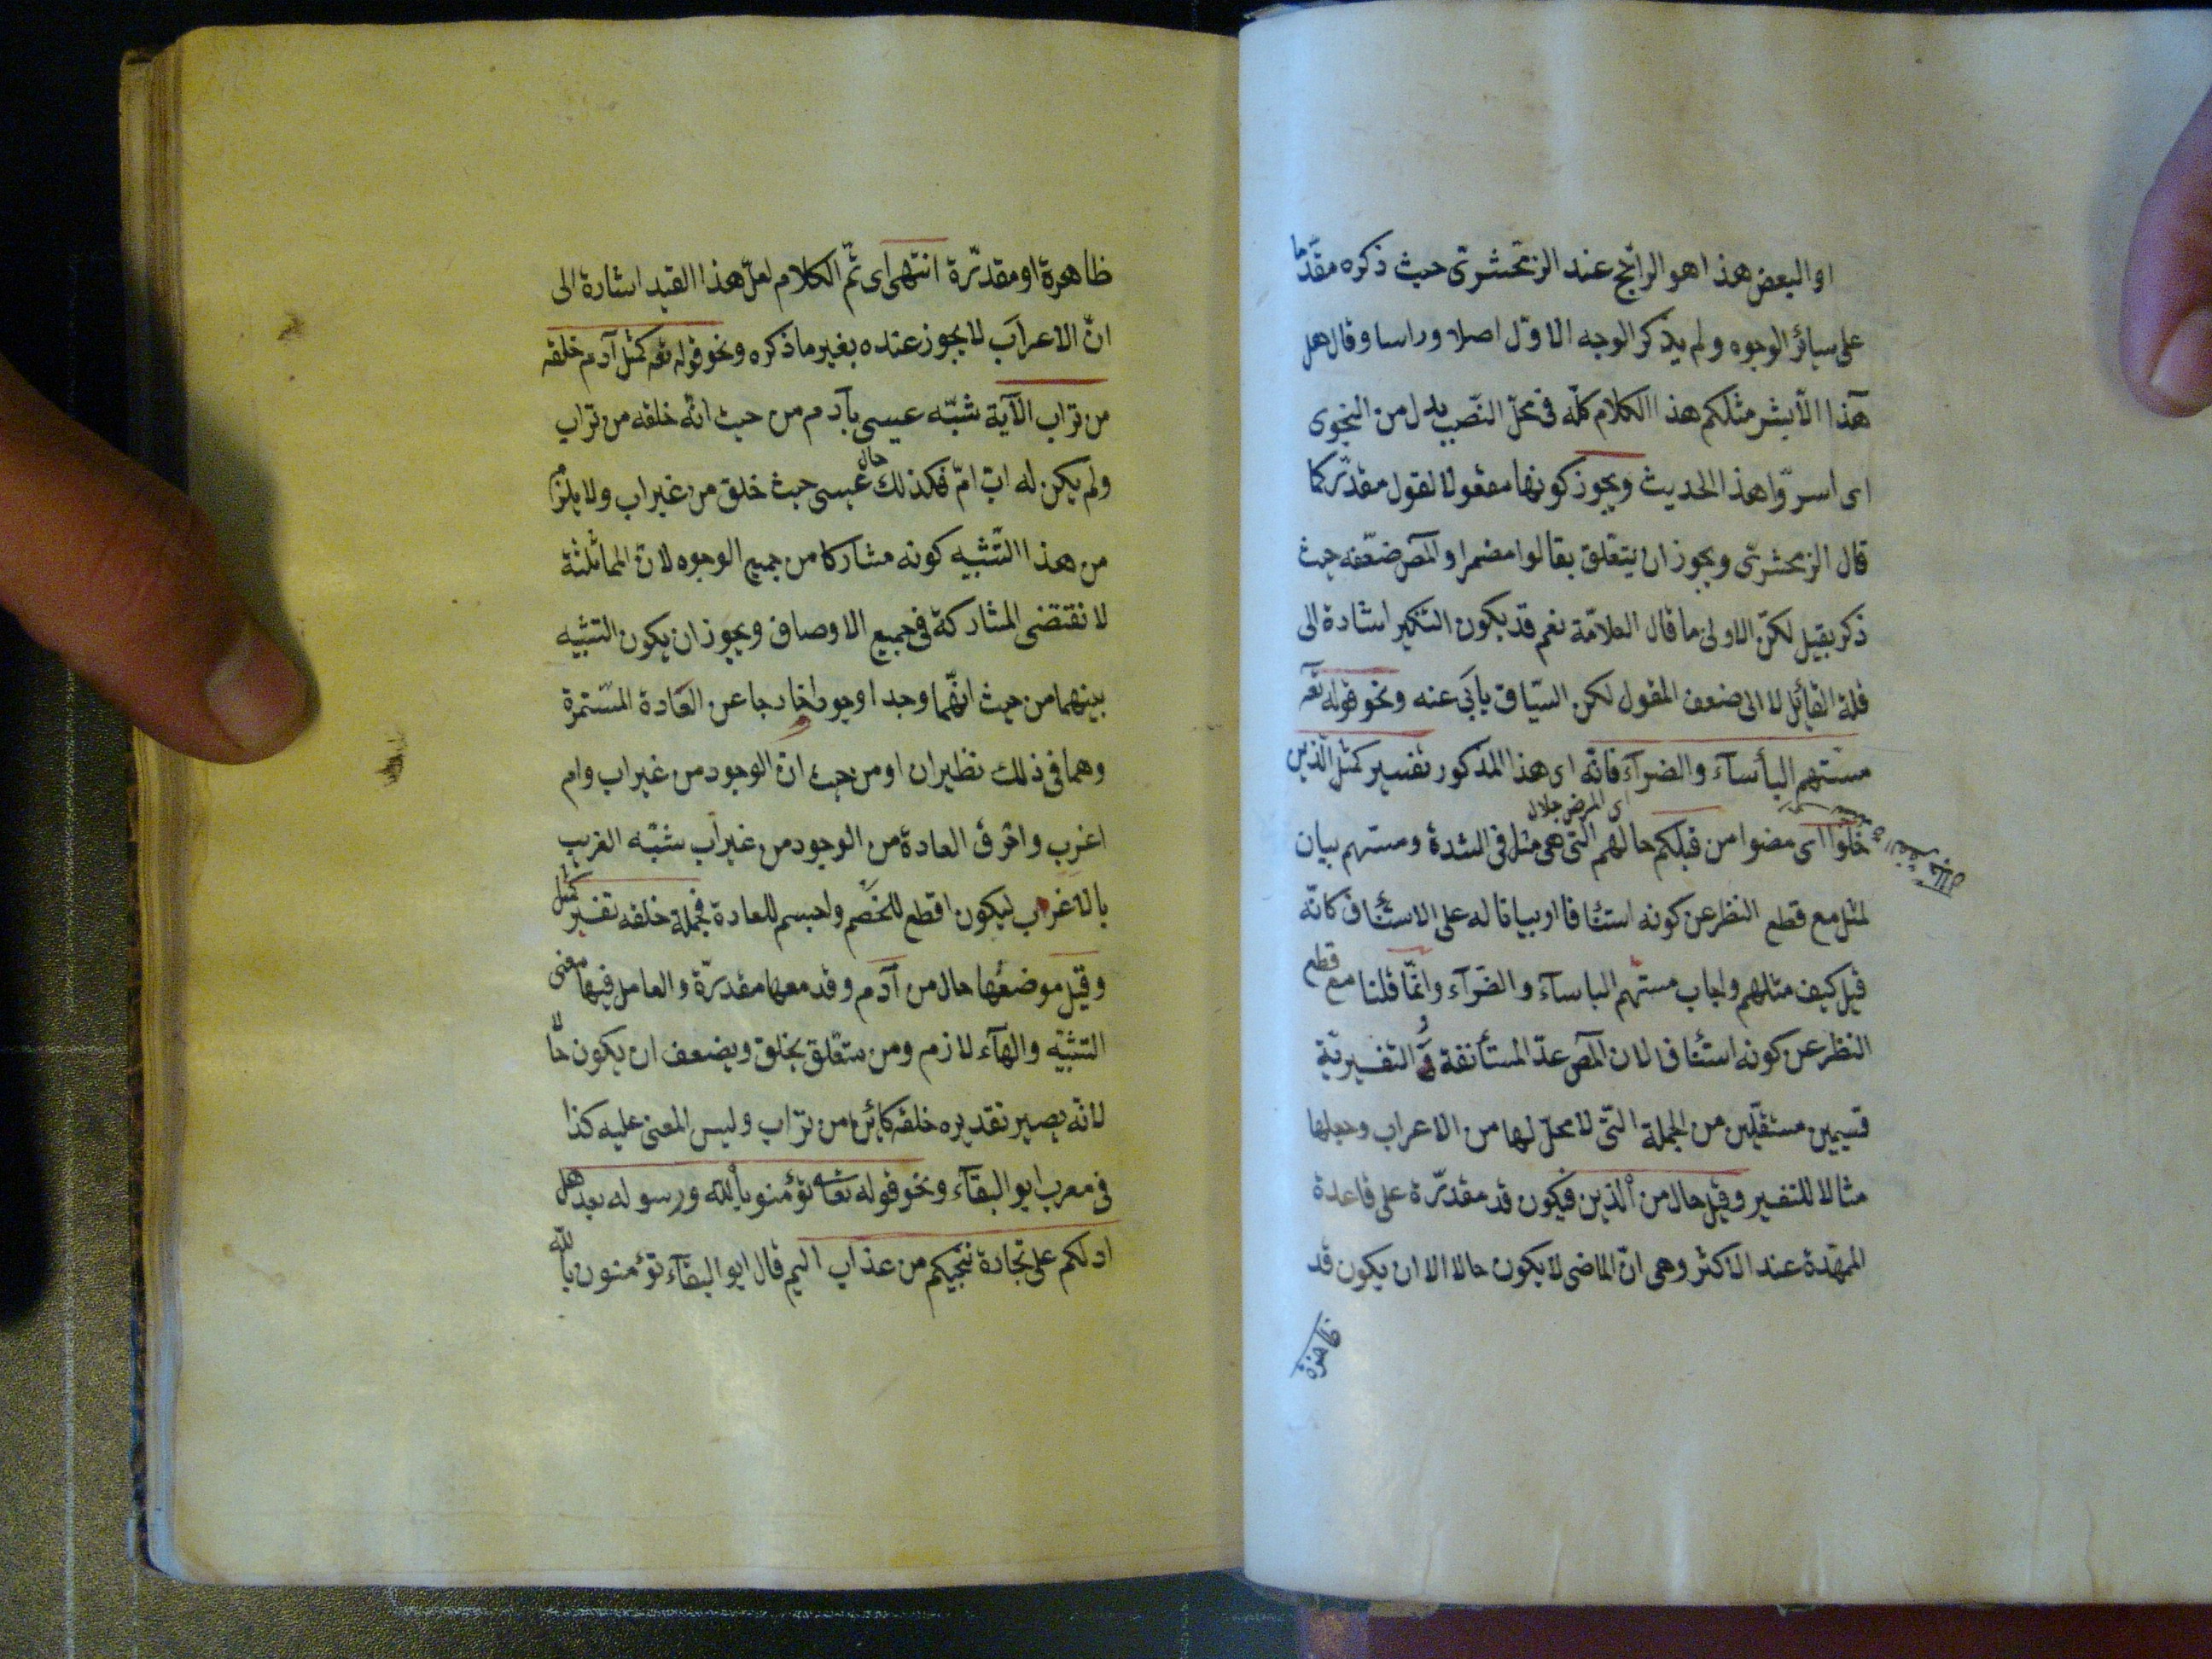 او البعض هذا هو الراجح عند الزمخشرى حيث ذكره مقدّما
على سائر الوجوه ولم يذكر الوجه الاوّل اصلا وراسا وقال هل
هذا الّا بشر مثلكم هذا الكلام كلّه فى محلّ النّصب بدل من النجوى
اى اسرّوا هذا الحديث ويجوز كونها مفعولا لقول مقدّر كما
قال الزمخشرىّ ويجوز ان يتعلق بقالوا مضمرا والمص ضعّفه حيث
ذكر بقيل لكنّ الاولى ما قال العلامّة نعم قد يكون التنكير اشارة الى
قلة القائل لا الى ضعف المقول لكن السّياق يأبى عنه ونحو قوله تعه
مستهم البأسآء والضرآء فانّه اى هذا المذكور تفسير كمثل الّذين
اى المرض جلال
خلوا اى مضوا من قبلكم حالهم التى هى مثل فى الشدة ومستهم بيان
جلال
لمثل مع قطع النظر عن كونه استئنافا او بيانا له على الاستئناف كانّه
قيل كيف مثلهم واجاب مستهم الباسآء والضّرآء وانّما قلنا مع قطع
النظر عن كونه استئنافا لان المص عدّ المستأنفة و التفسيريّة
قسيمين مستقلّين من الجملة التّى لا محلّ لها من الاعراب وجعلها
مثالا للتفسير وقيل حال من الذين فيكون قد مقدّرة على قاعدة
الممهّدة عند الاكثر وهى انّ الماضى لا يكون حالا الا ان يكون قد
ظاهرة
ظاهرة او مقدّرة انتهى اى تمّ الكلام لعلّ هذا القيد اشارة الى
انّ الاعراب لا يجوز عنده بغير ما ذكره ونحو قوله تعه كمثل آدم خلقه
من تراب الآية شبّه عيسى بآدم من حيث انّه خلقه من تراب
ولم يكن له اب امّ فكذلك حال عيسى حيث خلق من غير اب ولا يلزم
من هذا التّشبيه كونه مشاركا من جميع الوجوه لانّ المماثلثة
لا تقتضى المشاركة فى جميع الاوصاف ويجوز ان يكون التشبيه
بينهما من حيث انّهما وجدا وجودا خارجا عن العادة المستمرة
وهما فى ذلك نظيران او من حيث انّ الوجود من غير اب وام
اغرب واخرق العادة من الوجود من غير اب شبّه الغريب
بالاغرب ليكون اقطع للخصم واحسم للمادة فجملة خلقه تفسير كمثل
وقيل موضعها حال من آدم وقد معها مقدّرة والعامل فيها معنى
التشبيه والهآء لازم ومن متعّلق بخلق ويضعف ان يكون حالا
لانّه يصير تقديره خلقه كائن من تراب وليس المعنى عليه كذا
فى معرب ابو البقآء ونحو قوله تعالى تؤمنو بالله ورسوله بعد هل
ادلكم على تجارة تنجيكم من عذاب اليم قال ابو البقآء تؤمنون بالله